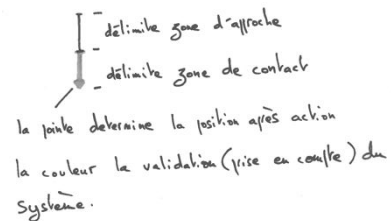 délimite zone d'approche
délimite zone de contact
la pointe determine la position après action
la couleur la validation (prise en compte) du
système.